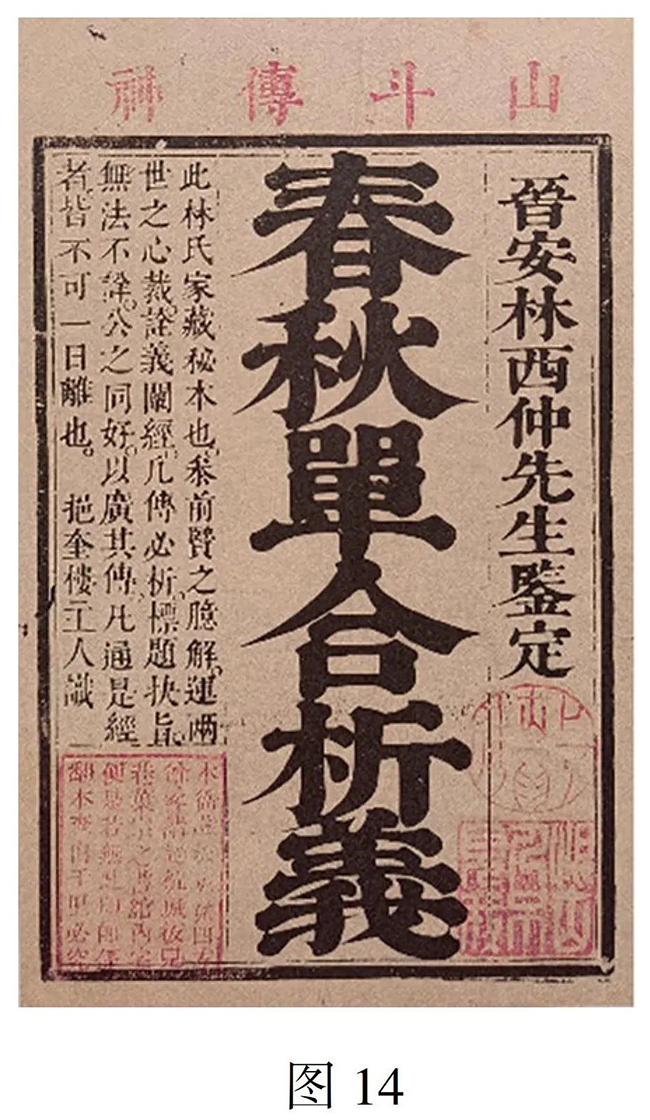 山斗傳神
晉安林西仲先生鑒定
春秋單合析義
此林氏家藏秘本也。叅前賢之臆解。運兩
世之心裁。詮義闡經。凡傳必析。標題抉旨。
無法不詳。公之同好。以廣其傳。凡通是經
者皆不可一日離也。 挹奎樓主人識
翻本查出千里必究
图 14